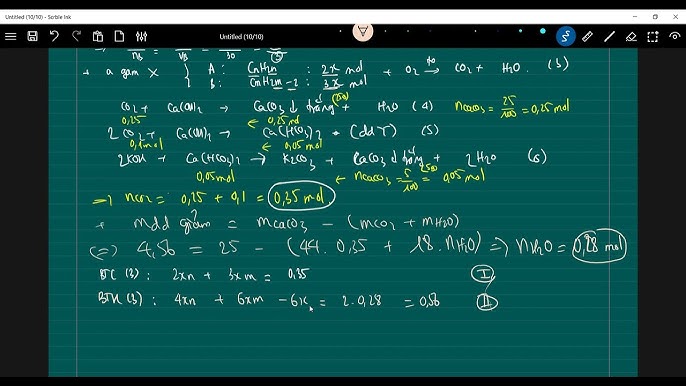 Untitled (10/10) - Scrble Ink
Untitled (10/10)
⇒ nB VB 30
+ a gam X } A: CnH2n : 2x mol + O2 →to CO2 + H2O (3)
B: CmH2m-2 : 3x mol
(25g)
CO2 + Ca(OH)2 → CaCO3 ↓ trắng + H2O (4) nCaCO3 = 25/100 = 0,25 mol
0,25 ← 0,25 mol
2CO2 + Ca(OH)2 → Ca(HCO3)2 (ddY) (5)
0,1 mol ← 0,05 mol
2KOH + Ca(HCO3)2 → K2CO3 + CaCO3 ↓ trắng + 2H2O (6)
0,05 mol ← nCaCO3 = 5/100 = 0,05 mol
⇒ nCO2 = 0,25 + 0,1 = 0,35 mol
+ mdd giảm = mCaCO3 - (mCO2 + mH2O)
⇔ 4,56 = 25 - (44. 0,35 + 18. nH2O) ⇒ nH2O = 0,28 mol
BTC (3): 2xn + 3xm = 0,35 (I)
BTH (3): 4xn + 6xm - 6x = 2. 0,28 = 0,56 (II)